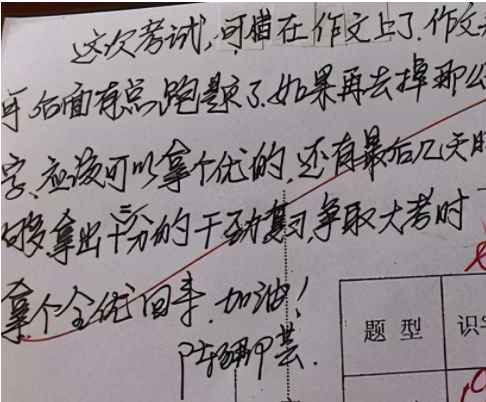 这次考试,可惜在作文上了.作文
后面有点跑题了.如果再去掉那
字、应该可以拿个优的,还有最后几天
够拿出十二分的干劲复习,争取大考时
拿个全优回来.加油!
题 型
识字